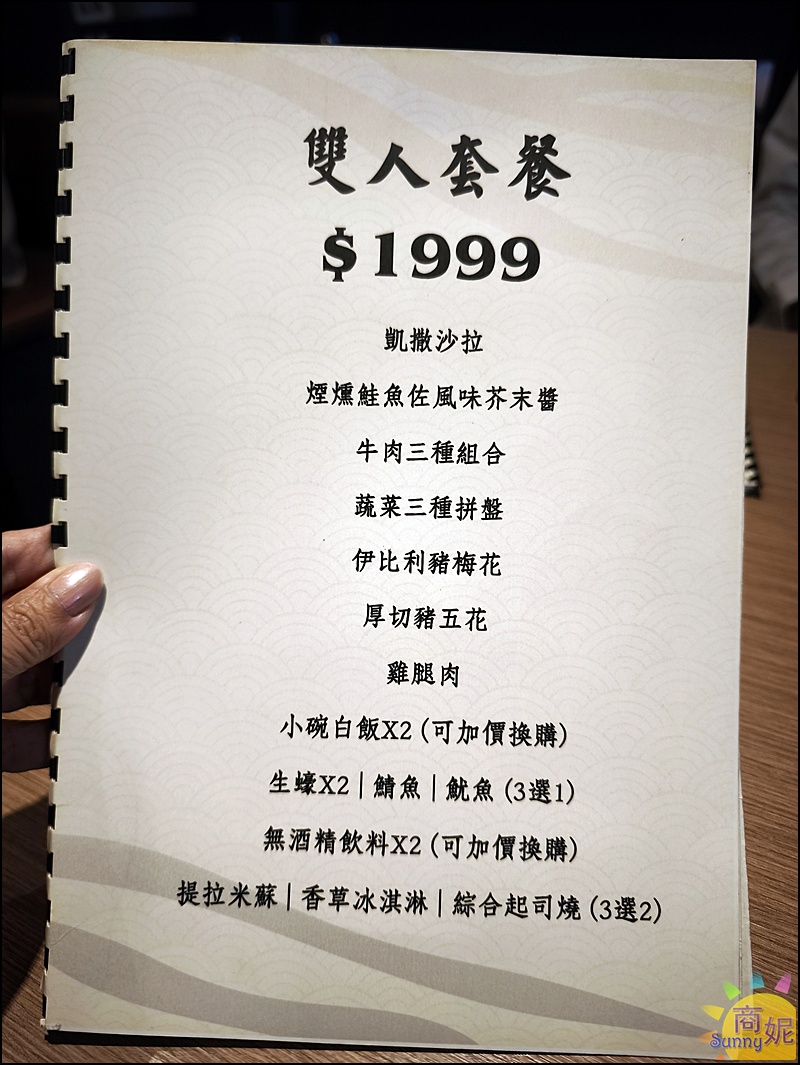 雙人套餐
$1999
凱撒沙拉
煙燻鮭魚佐風味芥末醬
牛肉三種組合
蔬菜三種拼盤
伊比利豬梅花
厚切豬五花
雞腿肉
小碗白飯X2 (可加價換購)
生蠔X2 | 鯖魚 | 魷魚 (3選1)
無酒精飲料X2 (可加價換購)
提拉米蘇 | 香草冰淇淋 | 綜合起司燒 (3選2)
商妮
Sunny